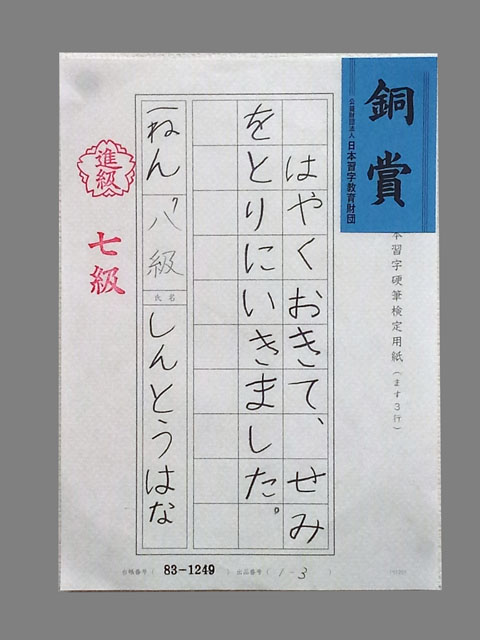 銅賞
公益財団法人 日本習字教育財団
本習字硬筆検定用紙(ます3行)
はやくおきて、せみ
をとりにいきました。
一ねん 八級 氏名 しんとうはな
進級
七級
台帳番号( 83-1249 ) 出品番号( 1-3 )